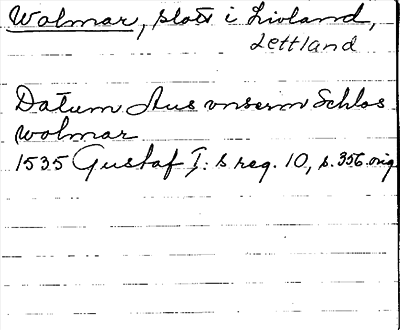 Wolmar, slott i Livland,
Lettland
Datum Aus vnserm Schlos
wolmar
1535 Gustaf I:s reg. 10, s. 356. orig